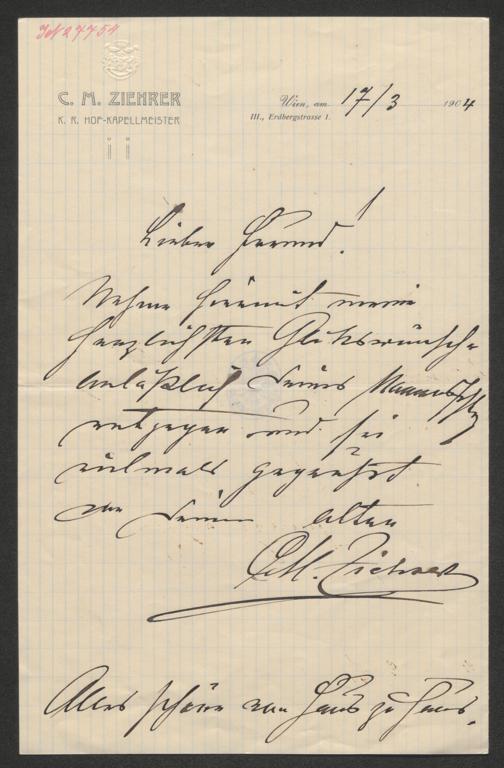 IN 27754
C. M. ZIEHRER
K. K. HOF-KAPELLMEISTER
Wien, am 17/3 1904
III., Erdbergstrasse 1.
Lieber Freund!
Nehme hiemit meine
herzlichsten Glükswünsche
anläßlich Deines Namensfestes
entgegen und sei
vielmals gegrüßt
von Deinem alten
CM. Ziehrer
Alles schöne von Haus zu Haus.